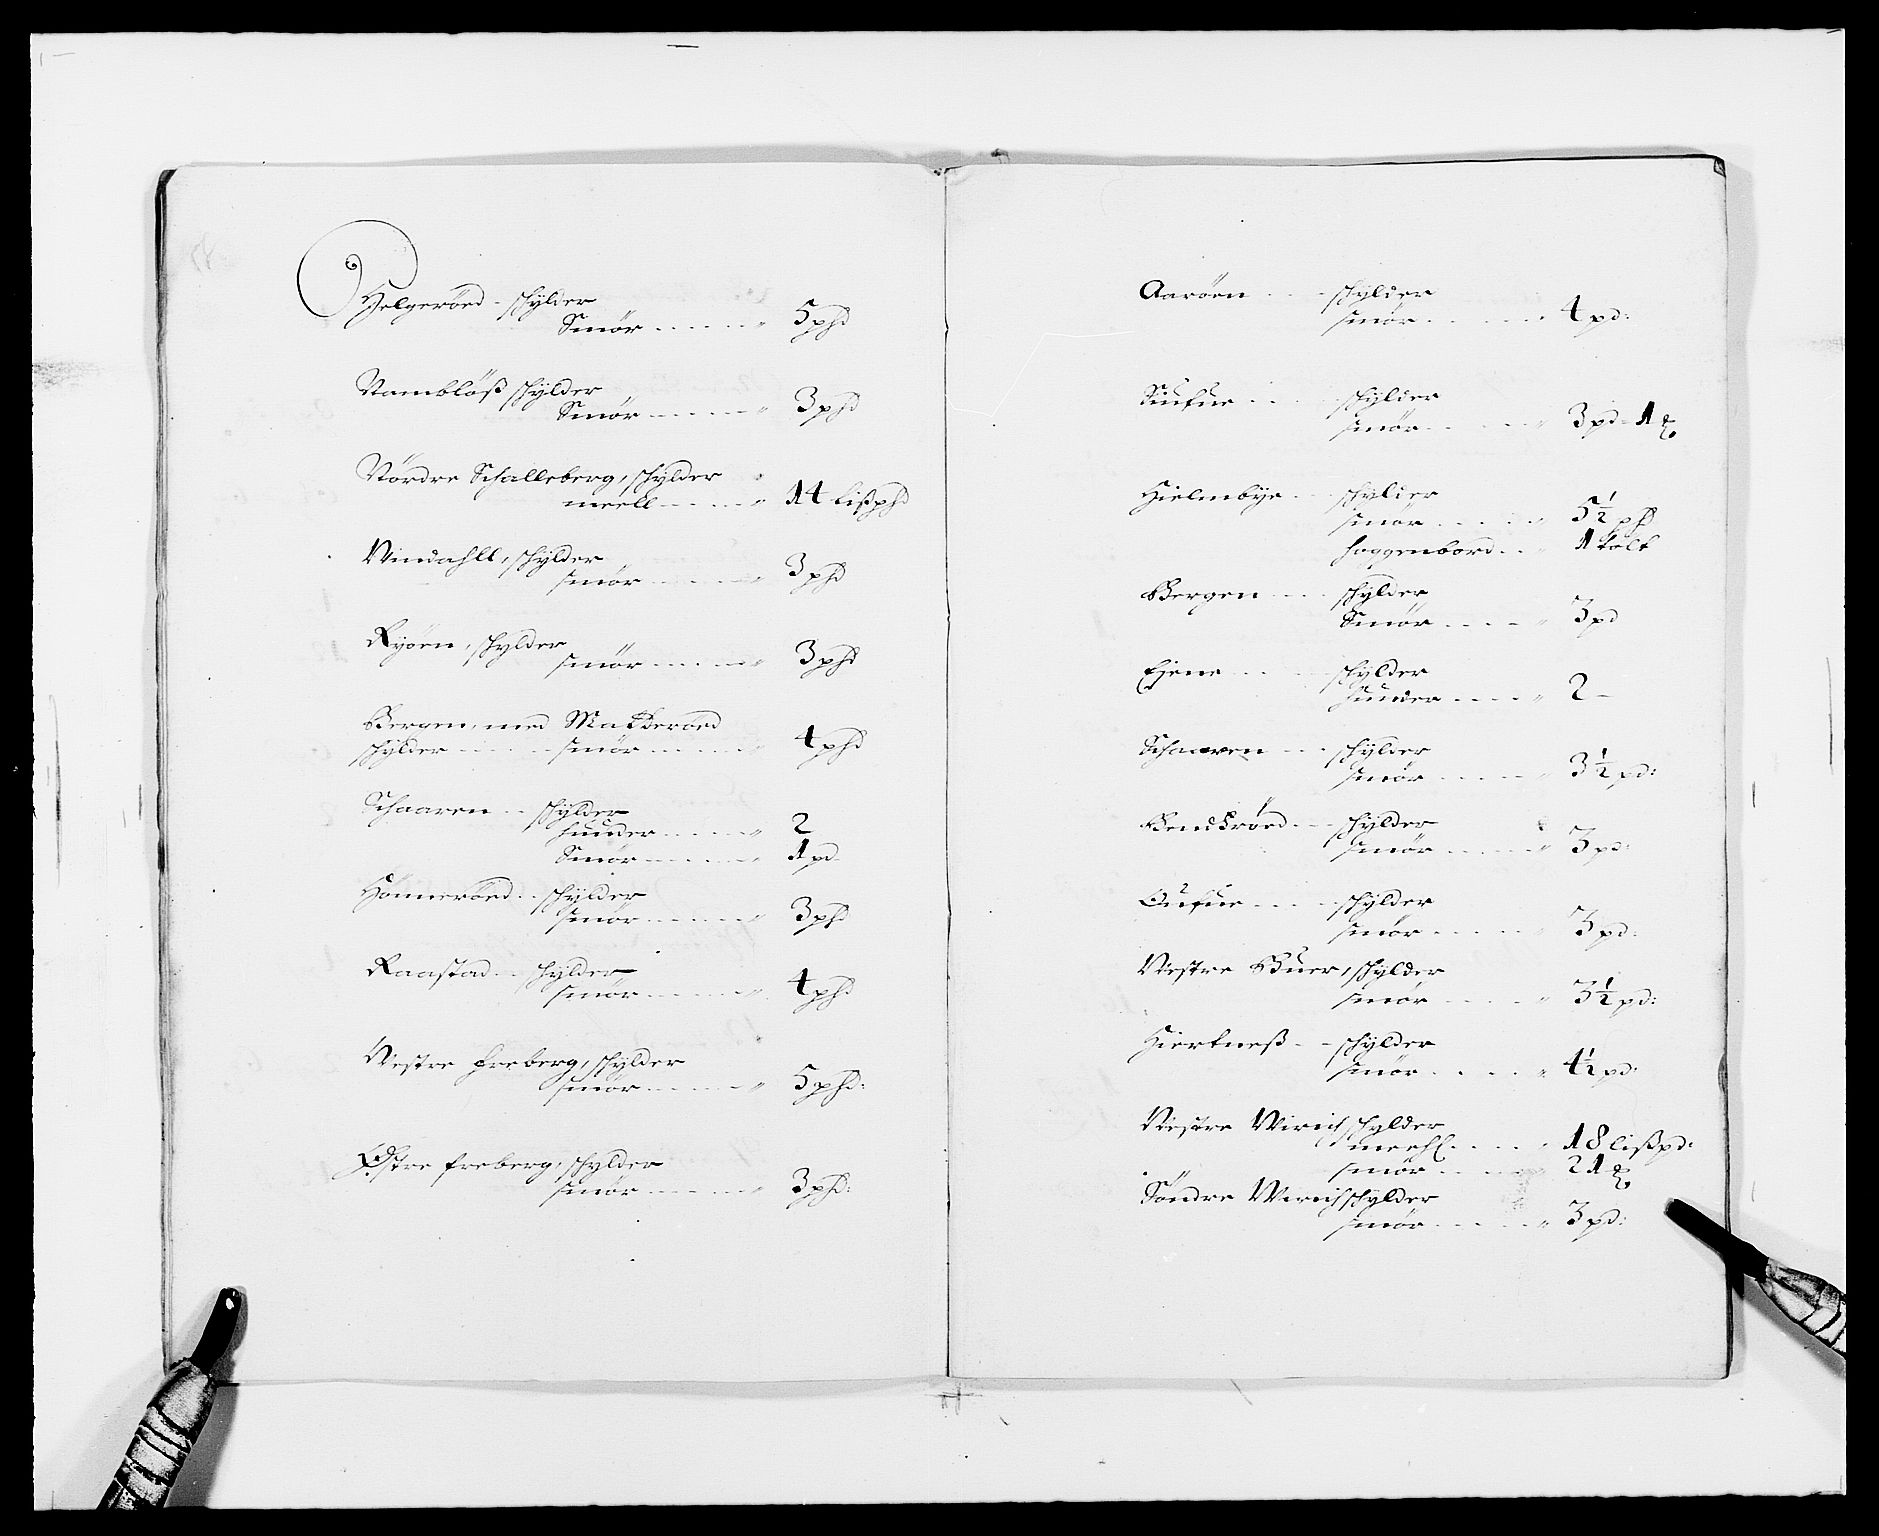 Helgeröed - schylder
Smör - - - - - " 5 phd
Namblöß schylder
Smör - - - - - " 3 phd
Nördre Schalleberg, schylder
meell - - - - " 14 lißphd
Vindahll, schylder
smör - - - - - " 3 phd
Ryöen, schylder
smör - - - - - " 3 phd
Bergen, med Makkeröed
schylder - - - - - smör - - - - - " 4 phd
Schaaren - - schylder
huuder - - - - - " 2
Smör - - - - - " 1 pd
Honneröed - - schylder
smör - - - - - " 3 phd
Raastad - - schylder
smör - - - - - " 4 phd
Vestre freberg, schylder
smör - - - - - " 5 phd:
Østre freberg, schylder
smör - - - - - " 3 phd:
Aaröen - - - schylder
smör - - - - - " 4 pd:
schylder
smör - - - - - " 3 pd - 1 ℔
Hielmbye - - schylder
smör - - - - - " 5½ phd
huggenbord - - " 1 tolt
Bergen - - - schylder
Smör - - - - " 3 pd
Ejene - - - - schylder
huuder - - - - " 2 -
Schaaren - - - schylder
smör - - - - - " 3½ pd:
Bendkröed - - schylder
smör - - - - - " 3 pd:
Oufue - - - - schylder
smör - - - - - " 3 pd:
Vestre Buer, schylder
smör - - - - - " 3½ pd:
Hiertneß - - schylder
smör - - - - - " 4½ pd:
Vestre Virich schylder
meehl - - - - " 18 lißpd:
smör - - - - - 21 ℔
Söndre Virich schylder
smör - - - - - " 3 pd: